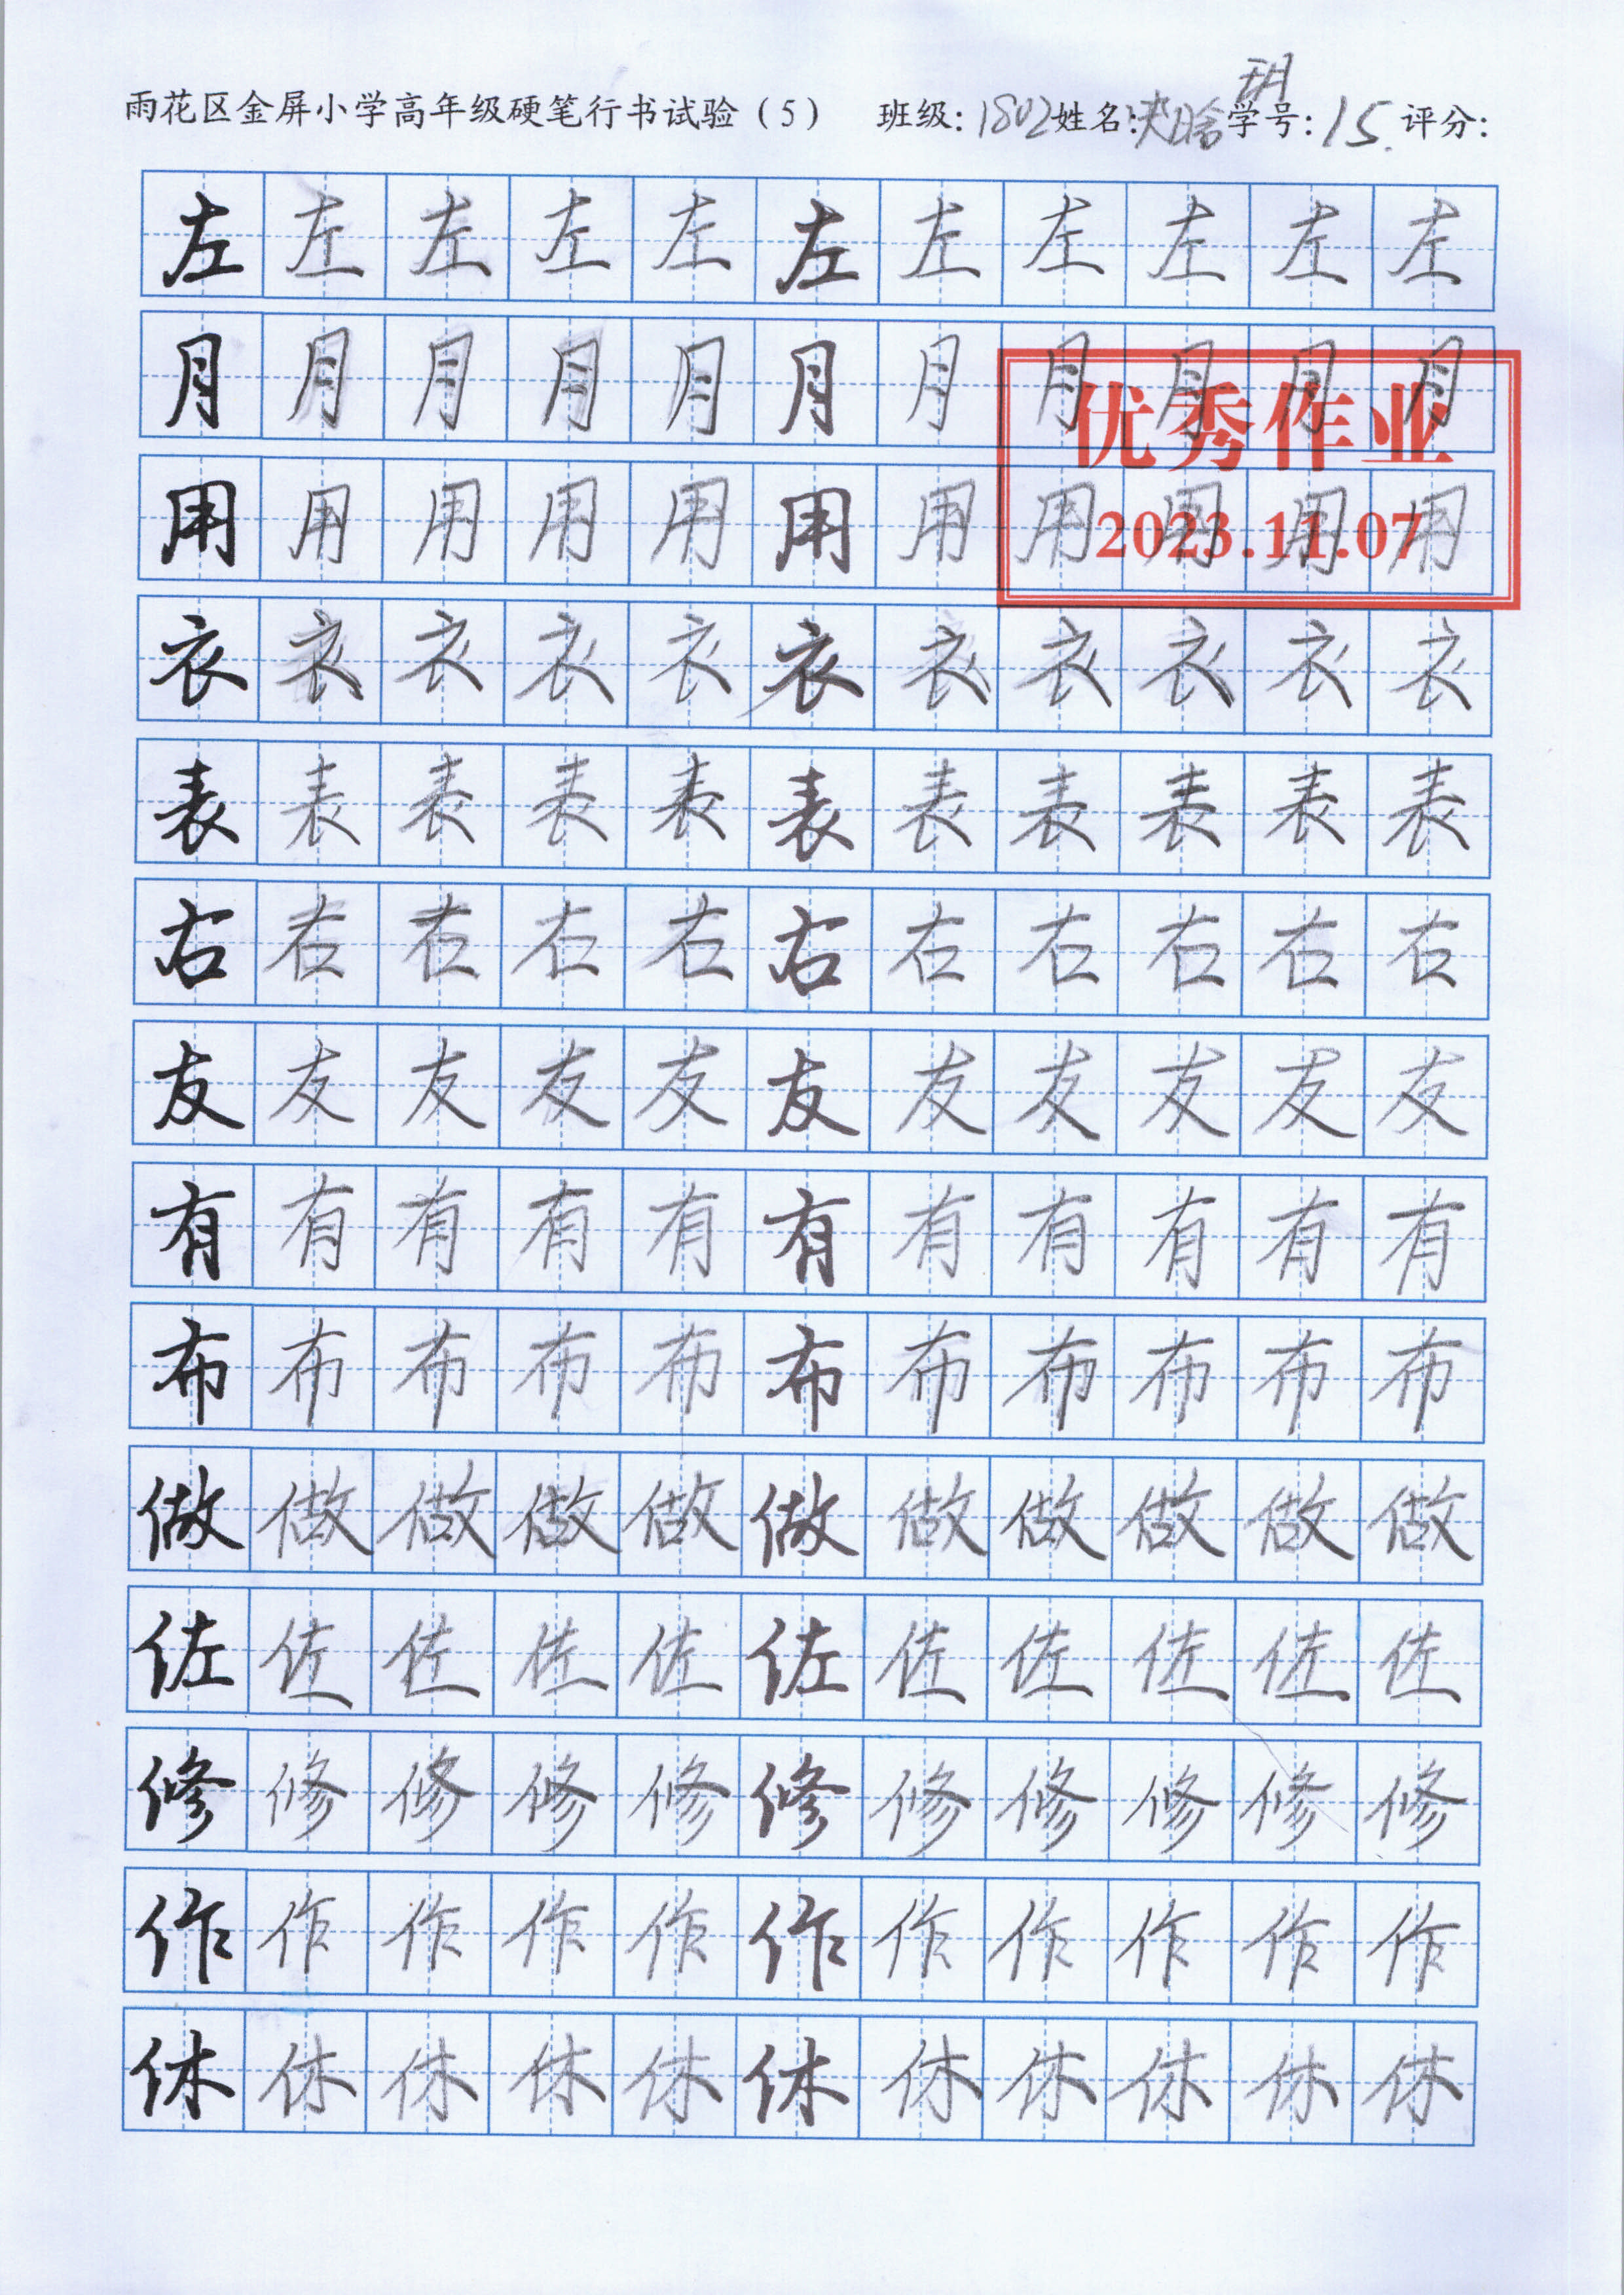 雨花区金屏小学高年级硬笔行书试验（5） 班级: 1802 姓名: 晗玥 学号: 15. 评分:
左左左左左左左左左左左
月月月月月月月月月月月
优秀作业
用用用用用用用用用用用
2023.11.07
衣衣衣衣衣衣衣衣衣衣衣
表表表表表表表表表表表
右右右右右右右右右右右
友友友友友友友友友友友
有有有有有有有有有有有
布布布布布布布布布布布
做做做做做做做做做做做
佐佐佐佐佐佐佐佐佐佐佐
修修修修修修修修修修修
作作作作作作作作作作作
休休休休休休休休休休休